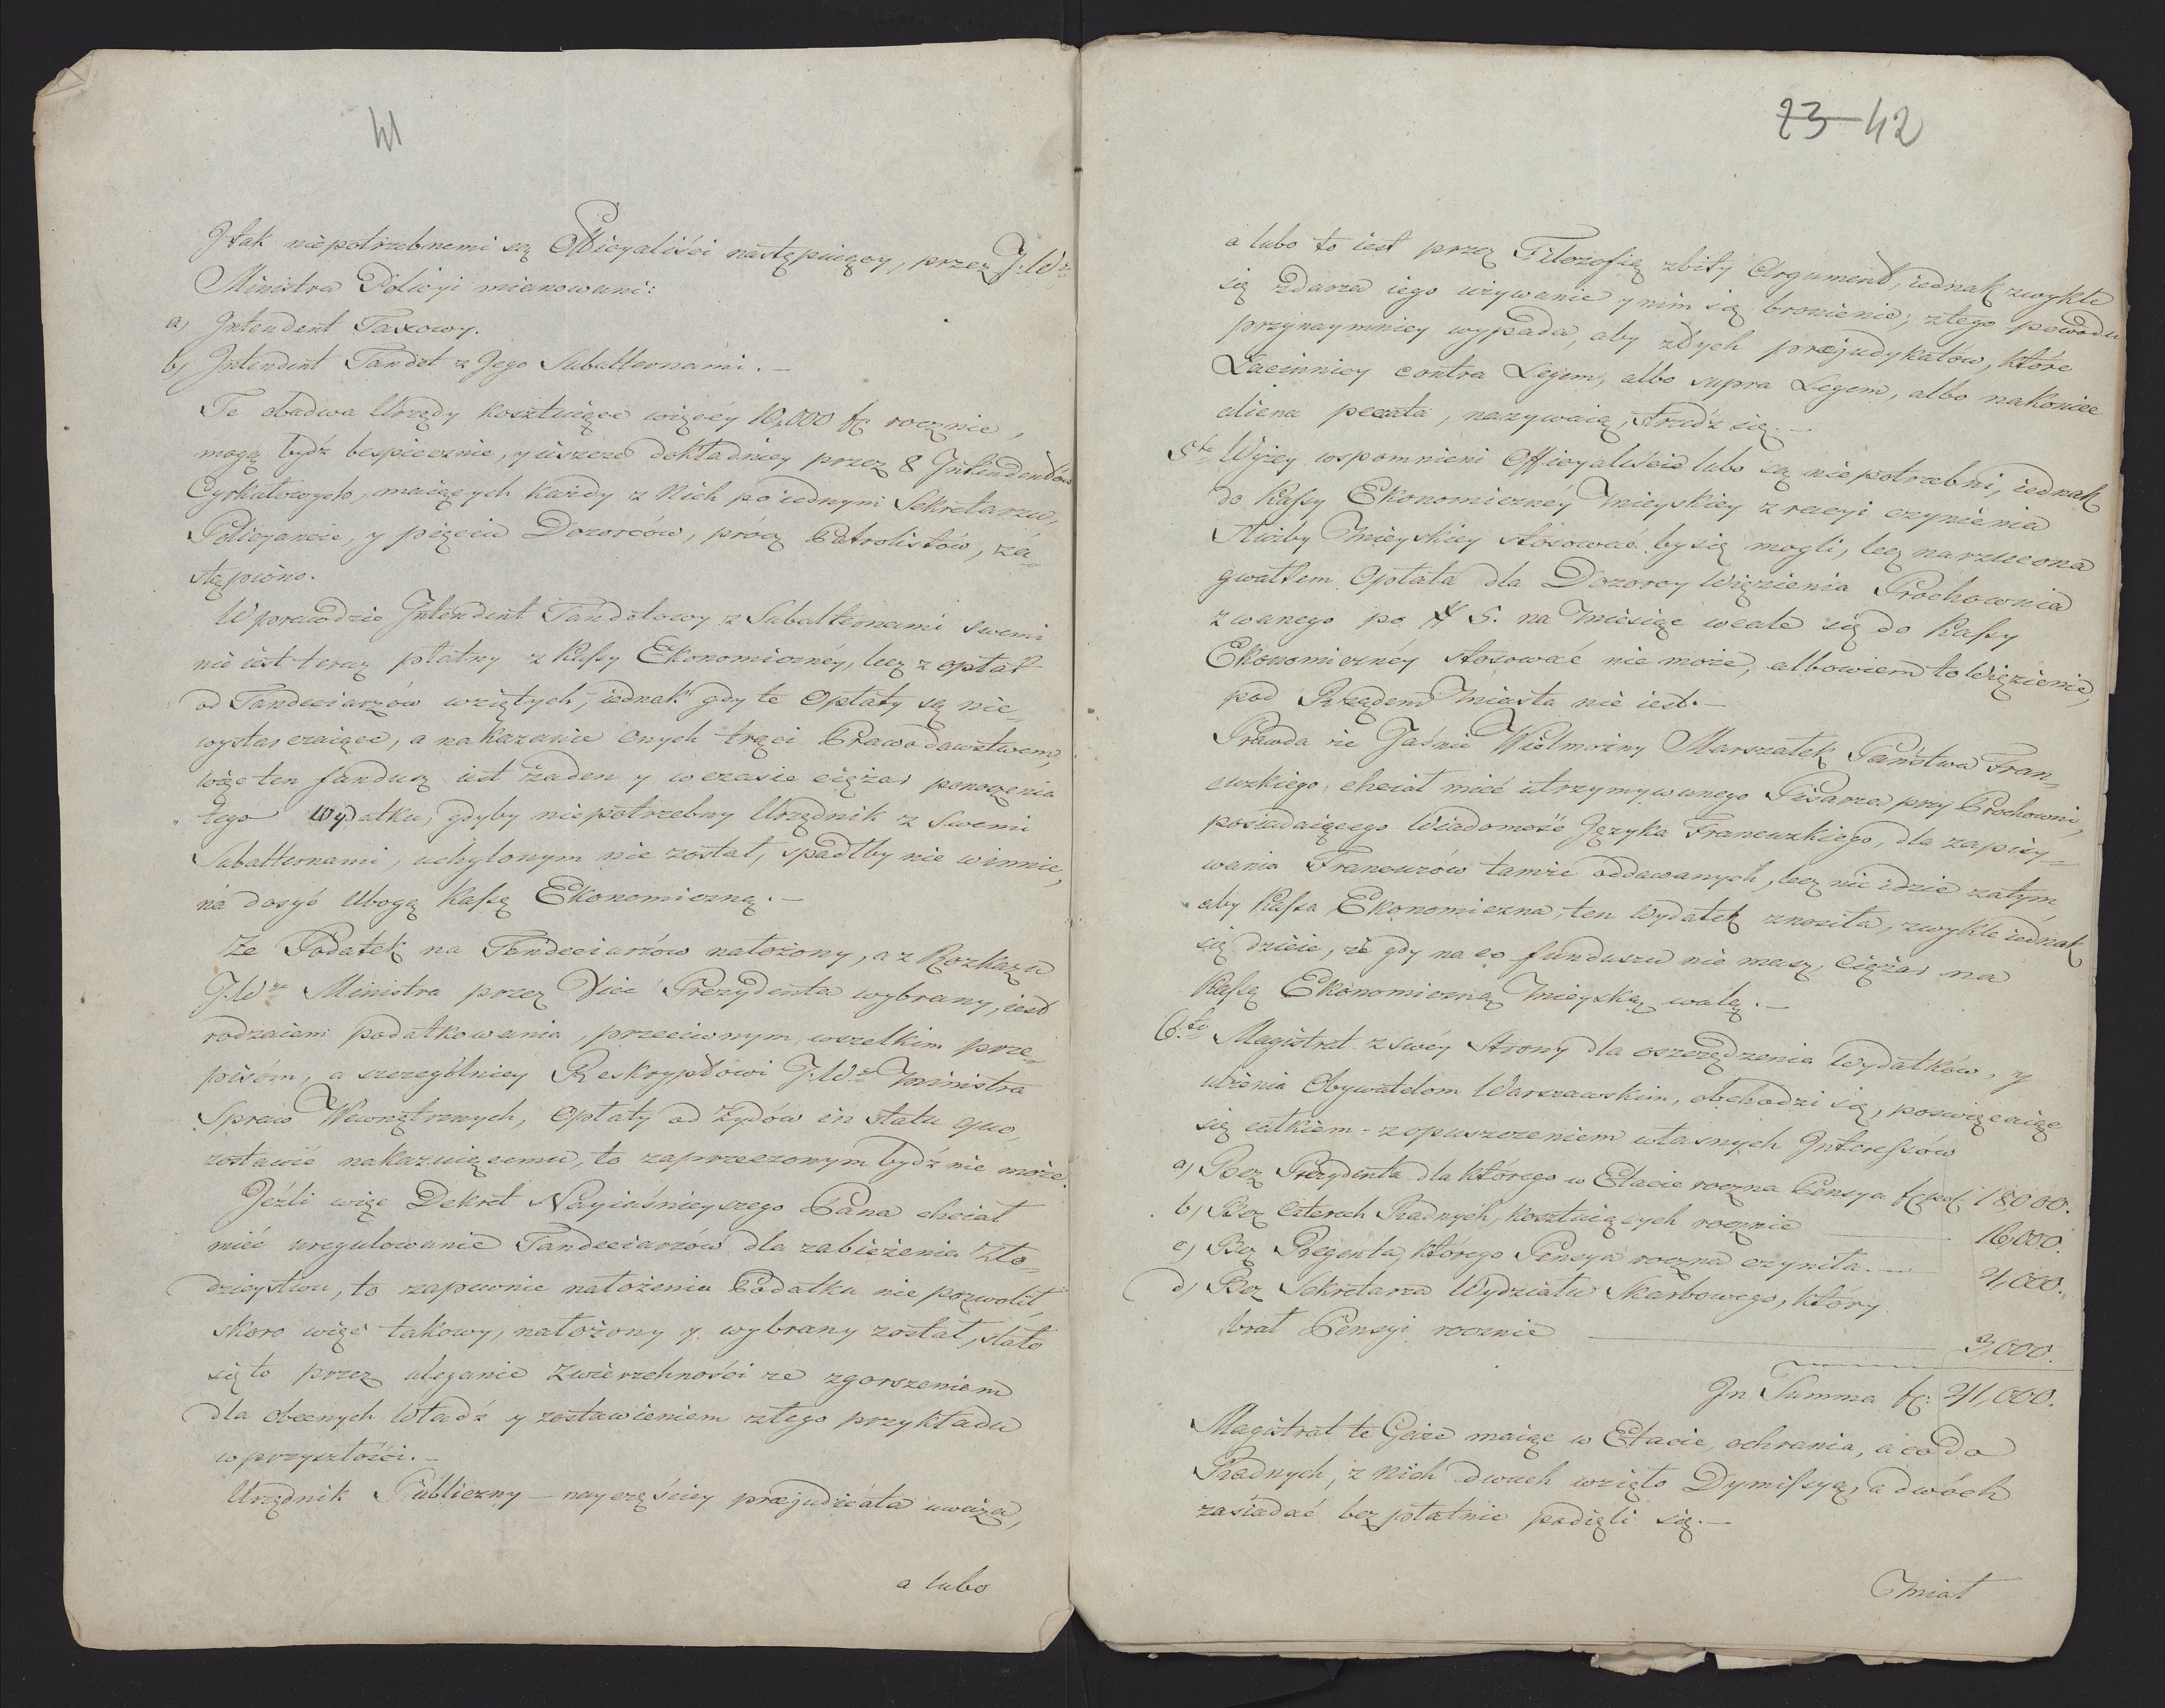 41
J tak niepotrzebnemi są Officyaliści następuiący, przez J.W.
Ministra Policyi mianowani:
a, Intendent Taxowy.
b, Intendent Tandet z Jego Subalternami. –
Te obadwa Urzędy kosztuiące więcéy 10,000 fz rocznie,
mogą bydź bespiecznie, y ieszcze dokładniey przez 8 Intendentów
Cyrkułowych, maiących każdy z Nich po iednym Sekretarzu,
Policyancie, y pięciu Dozorców, prócz Patrolistów, za„
stąpione.
Wprawdzie Intendent Tandetowy z Subalternami swemi
nie iest teraz płatny z Kassy Ekonomicznéy, lecz z opłat
od Tandeciarzów wziętych, iednak gdy te Opłaty są nie„
wystarczaiące, a nakazanie onych trąci Prawodawstwem,
więc ten fundusz iest żaden y w czasie ciężar ponoszenia
tego wydatku, gdyby niepotrzebny Urzędnik z Swemi
Subalternami, uchylonym nie został, spadłby nie winnie,
na dosyć Ubogą Kassę Ekonomiczną. –
Że Podatek na Tandeciarzów nałożony, a z Rozkazu
J.W. Ministra przez Vice Prezydenta wybrany, iest
rodzaiem podatkowania, przeciwnym wszelkim prze„
pisom, a szczególniey Reskryptowi J.W. Ministra
Spraw Wewnętrznych, Opłaty od Żydów in statu quo,
zostawić nakazuiącemu, to zaprzeczonym bydź nie może.
Jeźli więc Dekret Nayiaśnieyszego Pana chciał
mieć uregulowanie Tandeciarzów dla zabieżenia Zło„
dzieystwu, to zapewnie nałożenia Podatku nie pozwolił,
skoro więc takowy, nałożony y wybrany został, stało
się to przez uleganie Zwierzchności ze zgorszeniem
dla obecnych Władz y zostawieniem złego przykładu
w przyszłości. –
Urzędnik Publiczny – nayczęściey præjudicata uważa,
a lubo
23 42
a lubo to iest przez Filozofią zbity Argument, iednak zwykle
się zdarza iego używanie y nim się bronienie; z tego powodu
przynaymniey wypada, aby złych præjudykatów, które
Łacinnicy contra Legem, albo supra Legem, albo nakoniec
aliena peccata, nazywaią, strzedz się. –
5te Wyżey wspomnieni Officyaliście lubo są niepotrzebni, iednak
do Kassy Ekonomicznéy Mieyskiey z racyi czynienia
Służby Mieyskiey stosować by się mogli, lecz narzucona
gwałtem Opłata dla Dozorcy Więzienia Prochownia
zwanego po # 5. na Miesiąc wcale się do Kassy
Ekonomicznéy stosować nie może, albowiem to Więzienie,
pod Rządem Miasta nie iest. –
Prawda że Jaśnie Wielmożny Marszałek Państwa Fran„
cuzkiego, chciał mieć utrzymywanego Pisarza przy Prochowni,
posiadaiącego Wiadomość Języka Francuzkiego, dla zapisy„
wania Francuzów tamże oddawanych, lecz nie idzie zatym,
aby Kassa Ekonomiczna, ten Wydatek znosiła, zwykle iednak
się dzieie, że gdy na co funduszu nie masz, ciężar na
Kassę Ekonomiczną Mieyską walą. –
6.to Magistrat z swéy Strony dla oszczędzenia Wydatków, y
ulżenia Obywatelom Warszawskim, obchodzi się, poswięcaiąc
się całkiem – z opuszczeniem własnych Interessów
a, Bez Prezydenta dla którego w Etacie roczna Pensya fzpol. 18000.
b, Bez czterech Radnych, kosztuiących rocznie 16,000.
c, Bez Regenta, którego Pensya roczna czyniła. – 4,000.
d, Bez Sekretarza Wydziału Skarbowego, który
brał Pensyi rocznie 3,000.
Jn Summa fz: 41,000.
Magistrat te Gaże maiąc w Etacie, ochrania, a co do
Radnych, z Nich dwuch wzięło Dymissyą, a dwóch
zasiadać bezpłatnie podięli się. –
Miał